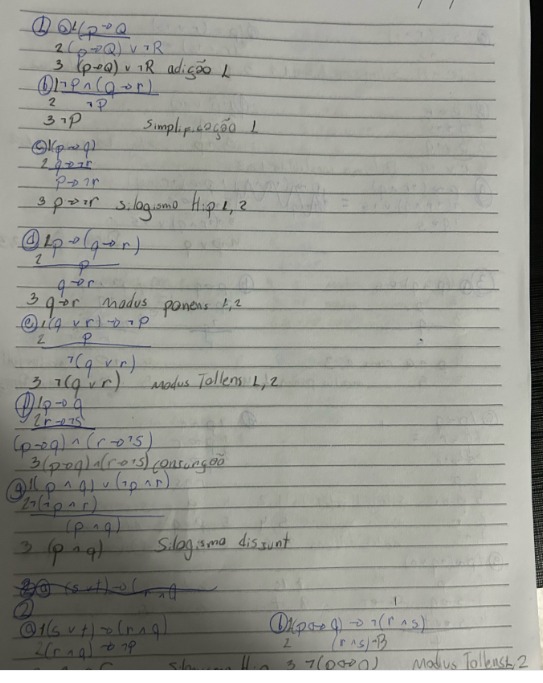 ① ⓐ 1 (p→Q
2 (p→Q) ∨ ¬R
3 (p→Q) ∨ ¬R adição 1
ⓑ 1 ¬P ∧ (q→r)
2 ¬P
3 ¬P Simplificação 1
ⓒ 1 (p→q)
2 q→¬r
p→¬r
3 p→¬r silogismo Hip 1,2
ⓓ 1 p→(q→r)
2 p
q→r
3 q→r Modus ponens 1,2
ⓔ 1 (q ∨ r)→¬P
2 P
¬(q ∨ r)
3 ¬(q ∨ r) Modus Tollens 1,2
ⓕ 1 p→q
2 r→¬s
(p→q) ∧ (r→¬s)
3 (p→q) ∧ (r→¬s) conjunção
ⓖ 1 (p ∧ q) ∨ (¬p ∧ r)
2 ¬(¬p ∧ r)
(p ∧ q)
3 (p ∧ q) Silogismo disjunt
②
ⓐ 1 (s ∨ t)→(r ∧ q) ⓑ 1 (p↔q)→¬(r ∧ s)
2 (r ∧ q)→¬P 2 (r ∧ s)
Hip 3 ¬(p↔q) Modus Tollens 1,2